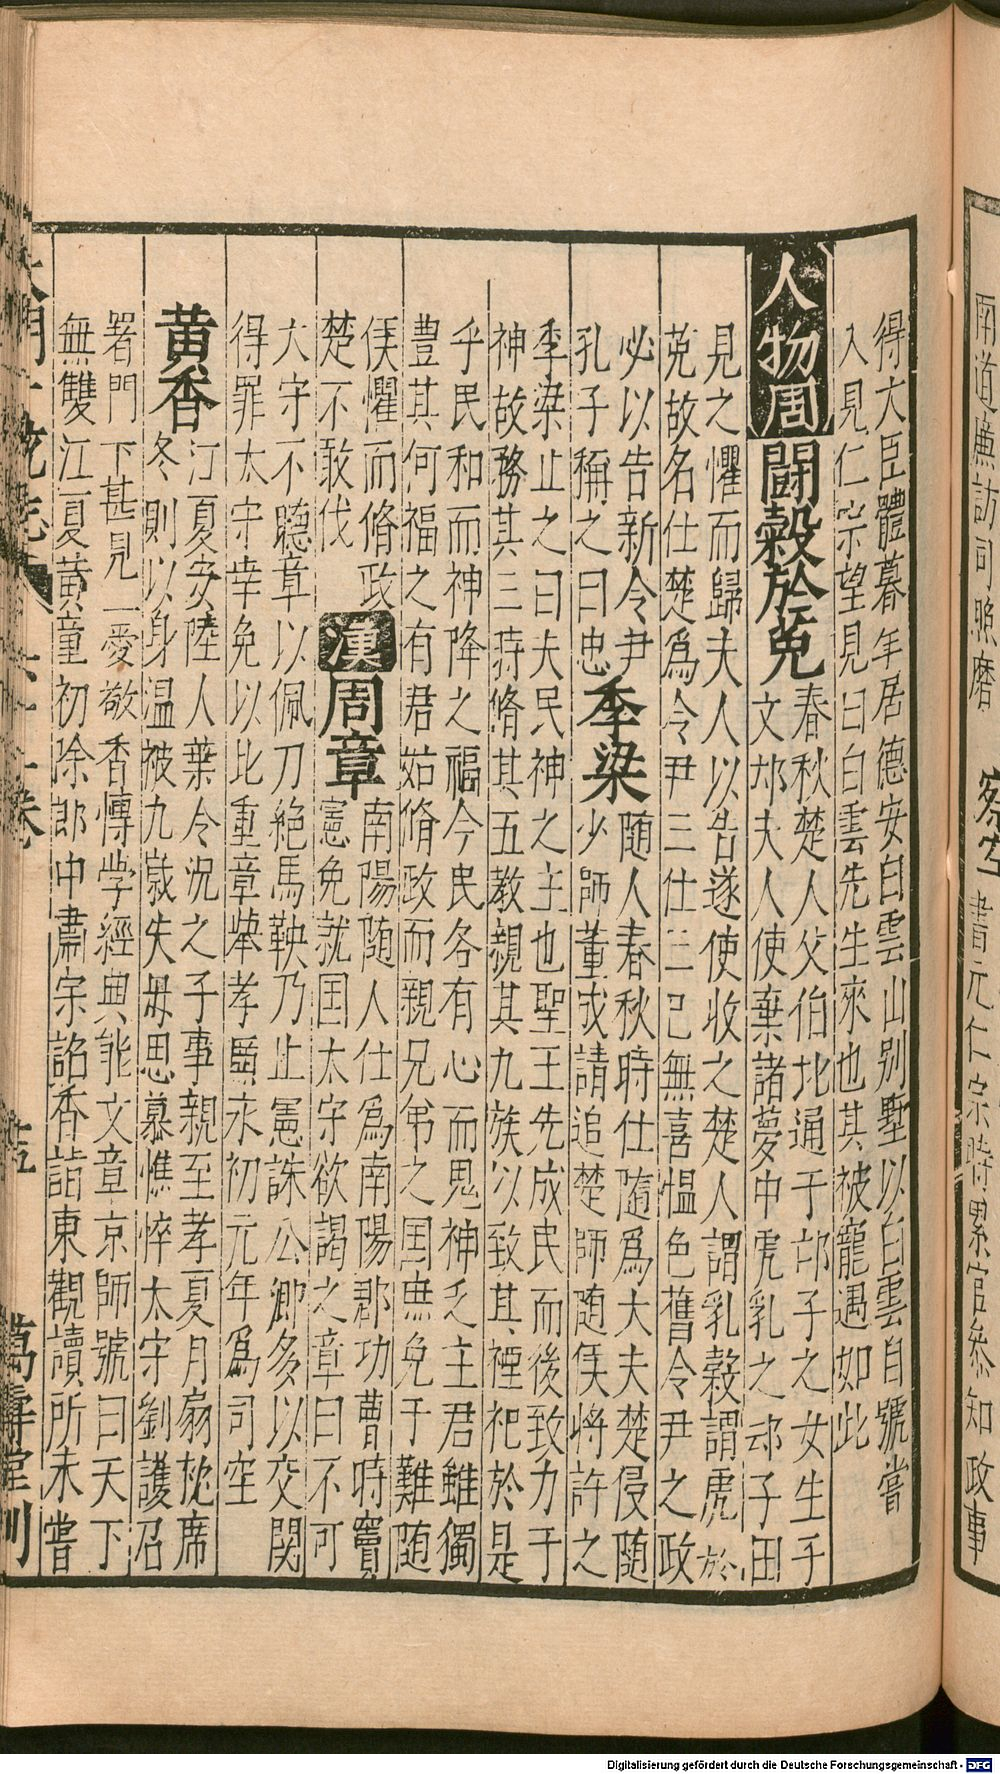 南道廉訪司照磨
書元仁宗時累官叅知政事
得大臣體暮年居德安白雲山別墅以白雲自號嘗
入見仁宗望見曰白雲先生來也其被寵遇如此
人物周
鬬穀於菟
春秋楚人父伯比通于䢵子之女生子
文䢵夫人使棄諸夢中虎乳之䢵子田
見之懼而歸夫人以告遂使收之楚人謂乳穀謂虎於
菟故名仕楚爲令尹三仕三已無喜愠色舊令尹之政
必以告新令尹
孔子稱之曰忠
季梁
随人春秋時仕隨爲大夫楚侵随
少師董成請追楚師随侯将許之
季梁止之曰夫民神之主也聖王先成民而後致力于
神故務其三時脩其五教親其九族以致其禋祀於是
乎民和而神降之福今民各有心而鬼神乏主君雖獨
豊其何福之有君姑脩政而親兄弟之国庶免于難随
侯懼而脩政
楚不敢伐
漢
周章
南陽随人仕爲南陽郡功曹時竇
憲免就国太守欲謁之章曰不可
大守不聽章以佩刀絶馬鞅乃止憲誅公卿多以交関
得罪太守幸免以此重章舉孝廉永初元年爲司空
黄香
江夏安陸人葉令况之子事親至孝夏月扇枕席
冬則以身温被九歲失毋思慕憔悴太守劉護召
署門下甚見愛敬香博学經典能文章京師號曰天下
無雙江夏黄童初除郎中肅宗詔香詣東觀讀所未嘗
萬壽堂刊
Digitalisierung gefördert durch die Deutsche Forschungsgemeinschaft - DFG